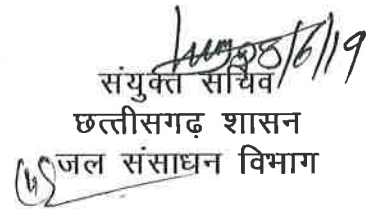 28/6/19
संयुक्त सचिव
छत्तीसगढ़ शासन
जल संसाधन विभाग